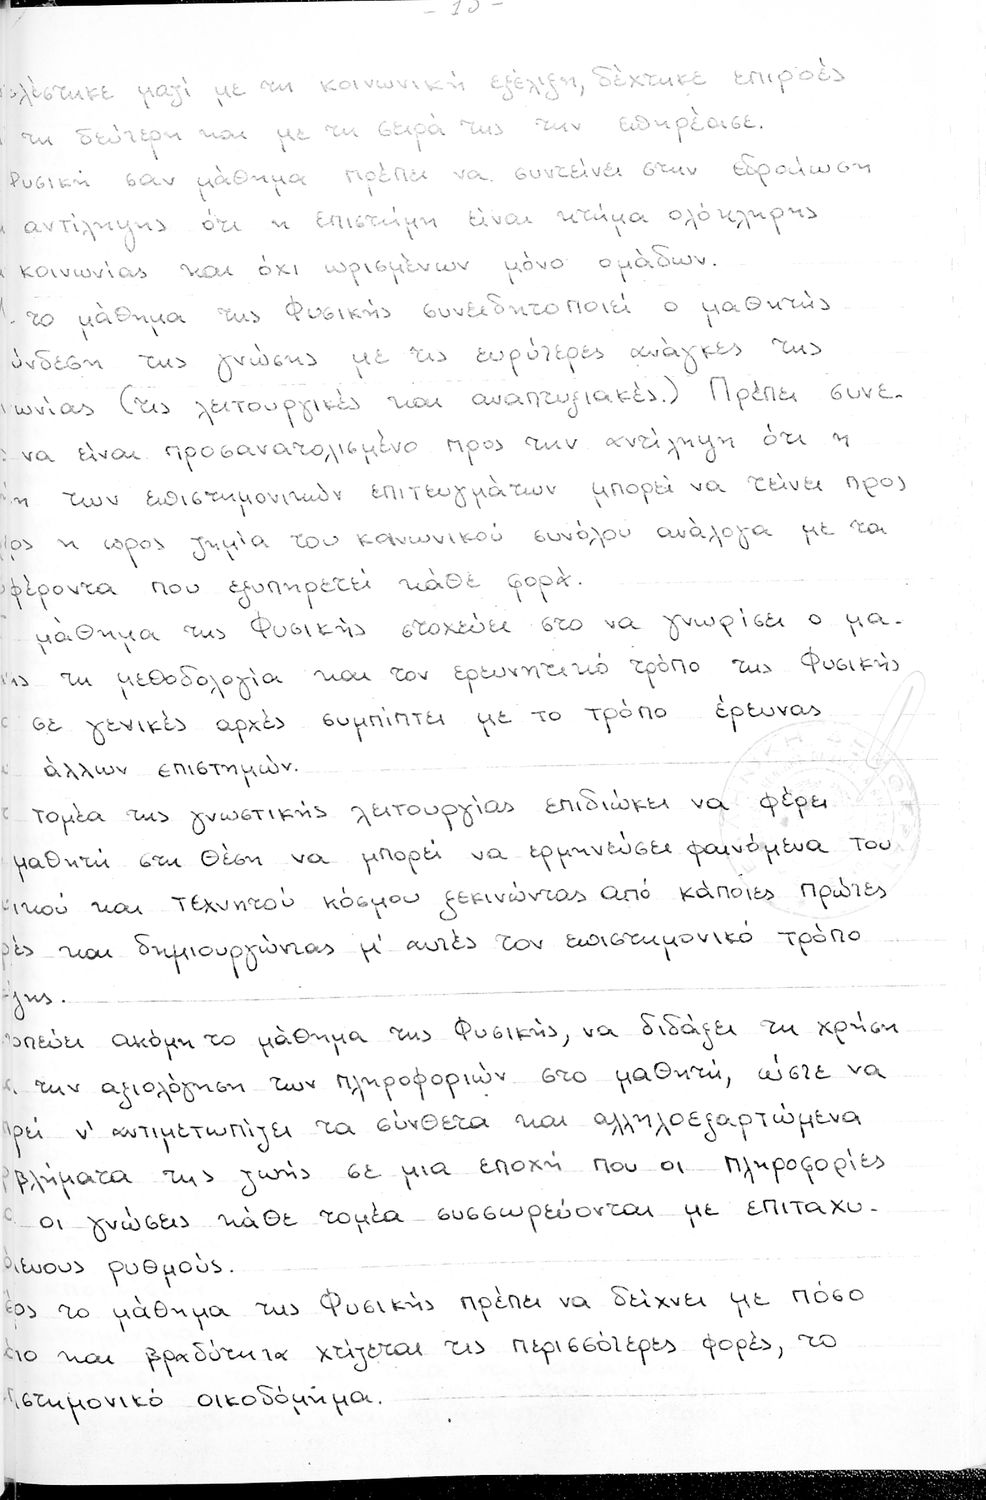 - 15 -
λέστηκε μαζί με τη κοινωνική εξέλιξη, δέχτηκε επιρροές
τη δεύτερη και με τη σειρά της την επηρέασε.
Φυσική σαν μάθημα πρέπει να συντείνει στην εδραίωση
αντίληψης ότι η επιστήμη είναι κτήμα ολόκληρης
κοινωνίας και όχι ωρισμένων μόνο ομάδων.
το μάθημα της Φυσικής συνειδητοποιεί ο μαθητής
ύνδεση της γνώσης με τις ευρύτερες ανάγκες της
ωνίας (τις λειτουργικές και αναπτυξιακές.) Πρέπει συνε-
να είναι προσανατολισμένο προς την αντίληψη ότι η
η των επιστημονικών επιτευγμάτων μπορεί να τείνει προς
ος η προς ζημία του κοινωνικού συνόλου ανάλογα με τα
φέροντα που εξυπηρετεί κάθε φορά.
μάθημα της Φυσικής στοχεύει στο να γνωρίσει ο μα-
ης τη μεθοδολογία και τον ερευνητικό τρόπο της Φυσικής
σε γενικές αρχές συμπίπτει με το τρόπο έρευνας
άλλων επιστημών.
τομέα της γνωστικής λειτουργίας επιδιώκει να φέρει
μαθητή στη θέση να μπορεί να ερμηνεύσει φαινόμενα του
ικού και τεχνητού κόσμου ξεκινώντας από κάποιες πρώτες
ρές και δημιουργώντας μ' αυτές τον επιστημονικό τρόπο
ψης.
οπεύει ακόμη το μάθημα της Φυσικής, να διδάξει τη χρήση
την αξιολόγηση των πληροφοριών στο μαθητή, ώστε να
ρεί ν' αντιμετωπίζει τα σύνθετα και αλληλοεξαρτώμενα
βλήματα της ζωής σε μια εποχή που οι πληροφορίες
οι γνώσεις κάθε τομέα συσσωρεύονται με επιταχυ-
όμενους ρυθμούς.
έρος το μάθημα της Φυσικής πρέπει να δείχνει με πόσο
και βραδύτητα χτίζεται τις περισσότερες φορές, το
πιστημονικό οικοδόμημα.